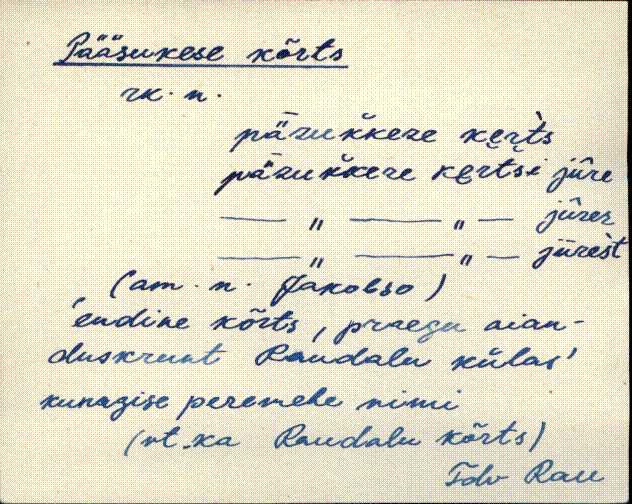 Pääsukese kõrts
rk. n.
pǟzukkeze kȩr̀t̀s
pǟzukkeze kȩrtsi jûre
— „ — „ — jûrer
— „ — „ — jūrest
(am. n. Jakobso)
'endine kõrts, praegu aian-
duskrunt Raudalu külas'
kunagise peremehe nimi
(vt. ka Raudalu kõrts)
Rau